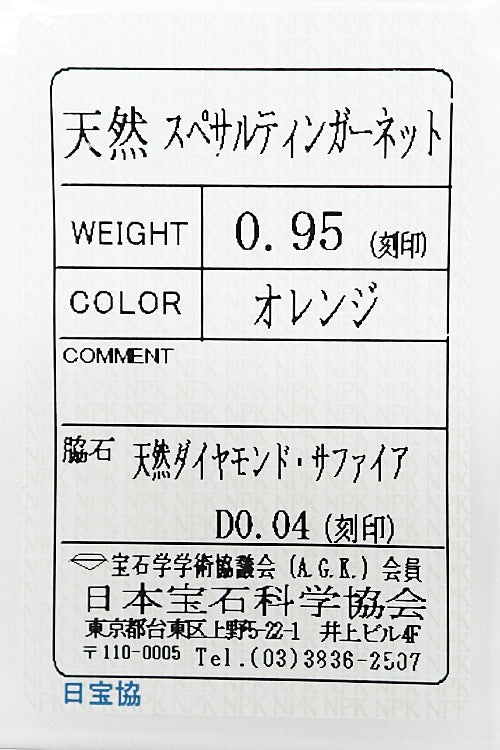 天然 スペサルティンガーネット
WEIGHT 0.95 (刻印)
COLOR オレンジ
COMMENT
脇石 天然ダイヤモンド・サファイア
D0.04 (刻印)
宝石学学術協議会 (A.G.K.) 会員
日本宝石科学協会
東京都台東区上野5-22-1 井上ビル4F
〒110-0005 Tel.(03)3836-2507
日宝協